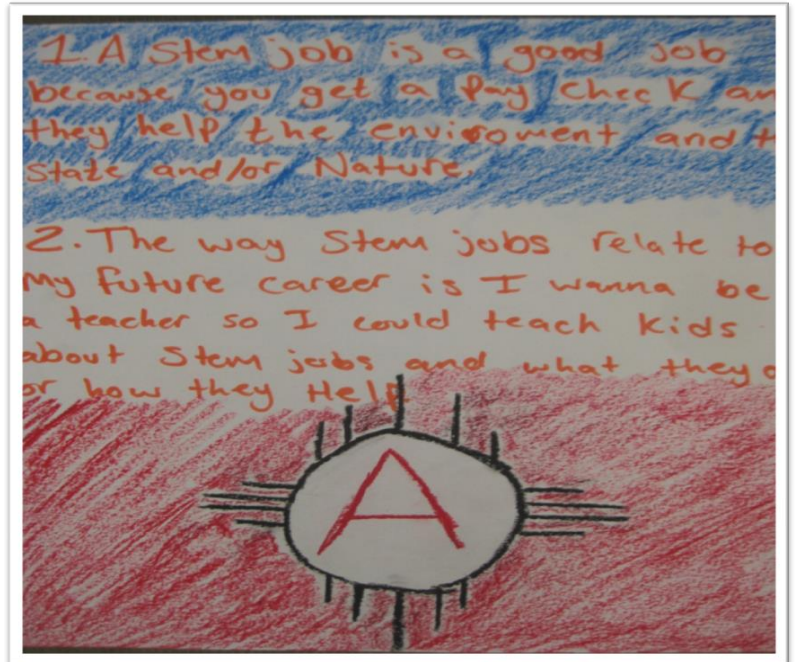 1. A Stem job is a good job
because you get a Pay Check an
they help the enviroment and t
State and/or Nature.
2. The way Stem jobs relate to
My future career is I wanna be
a teacher so I could teach kids
about Stem jobs and what they
or how they Help.
A